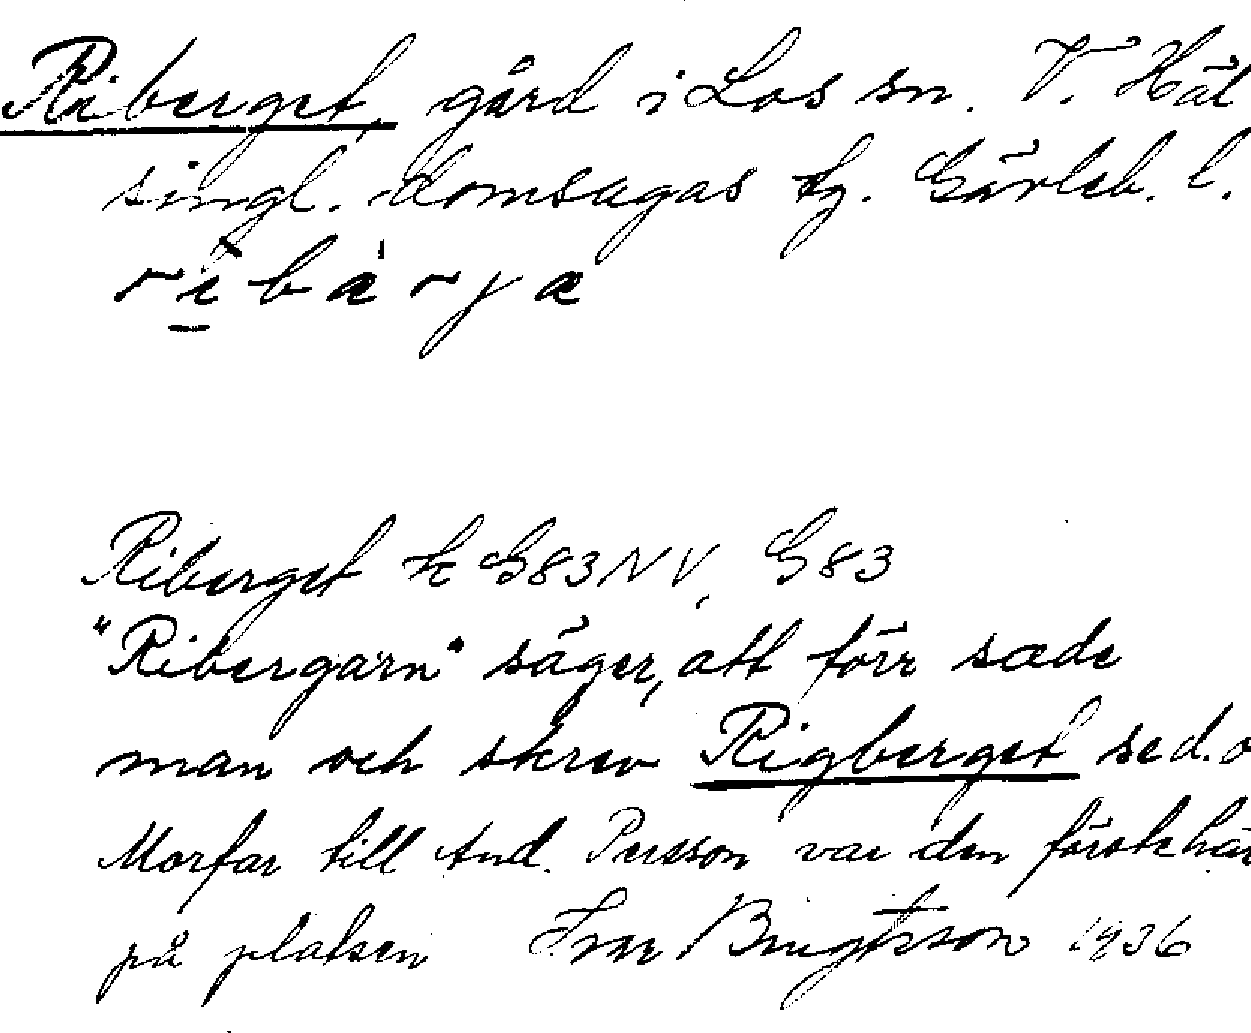 Riberget, gård i Los sn. V. Häl
singl. domsagas tg. Gävleb. l.
ribärja
Riberget k G83NV, G83
"Ribergarn" säger, att förr sade
man och skrev Rigberget sed.
Morfar till And. Persson var den första här
på platsen Ivar Bengtsson 1936